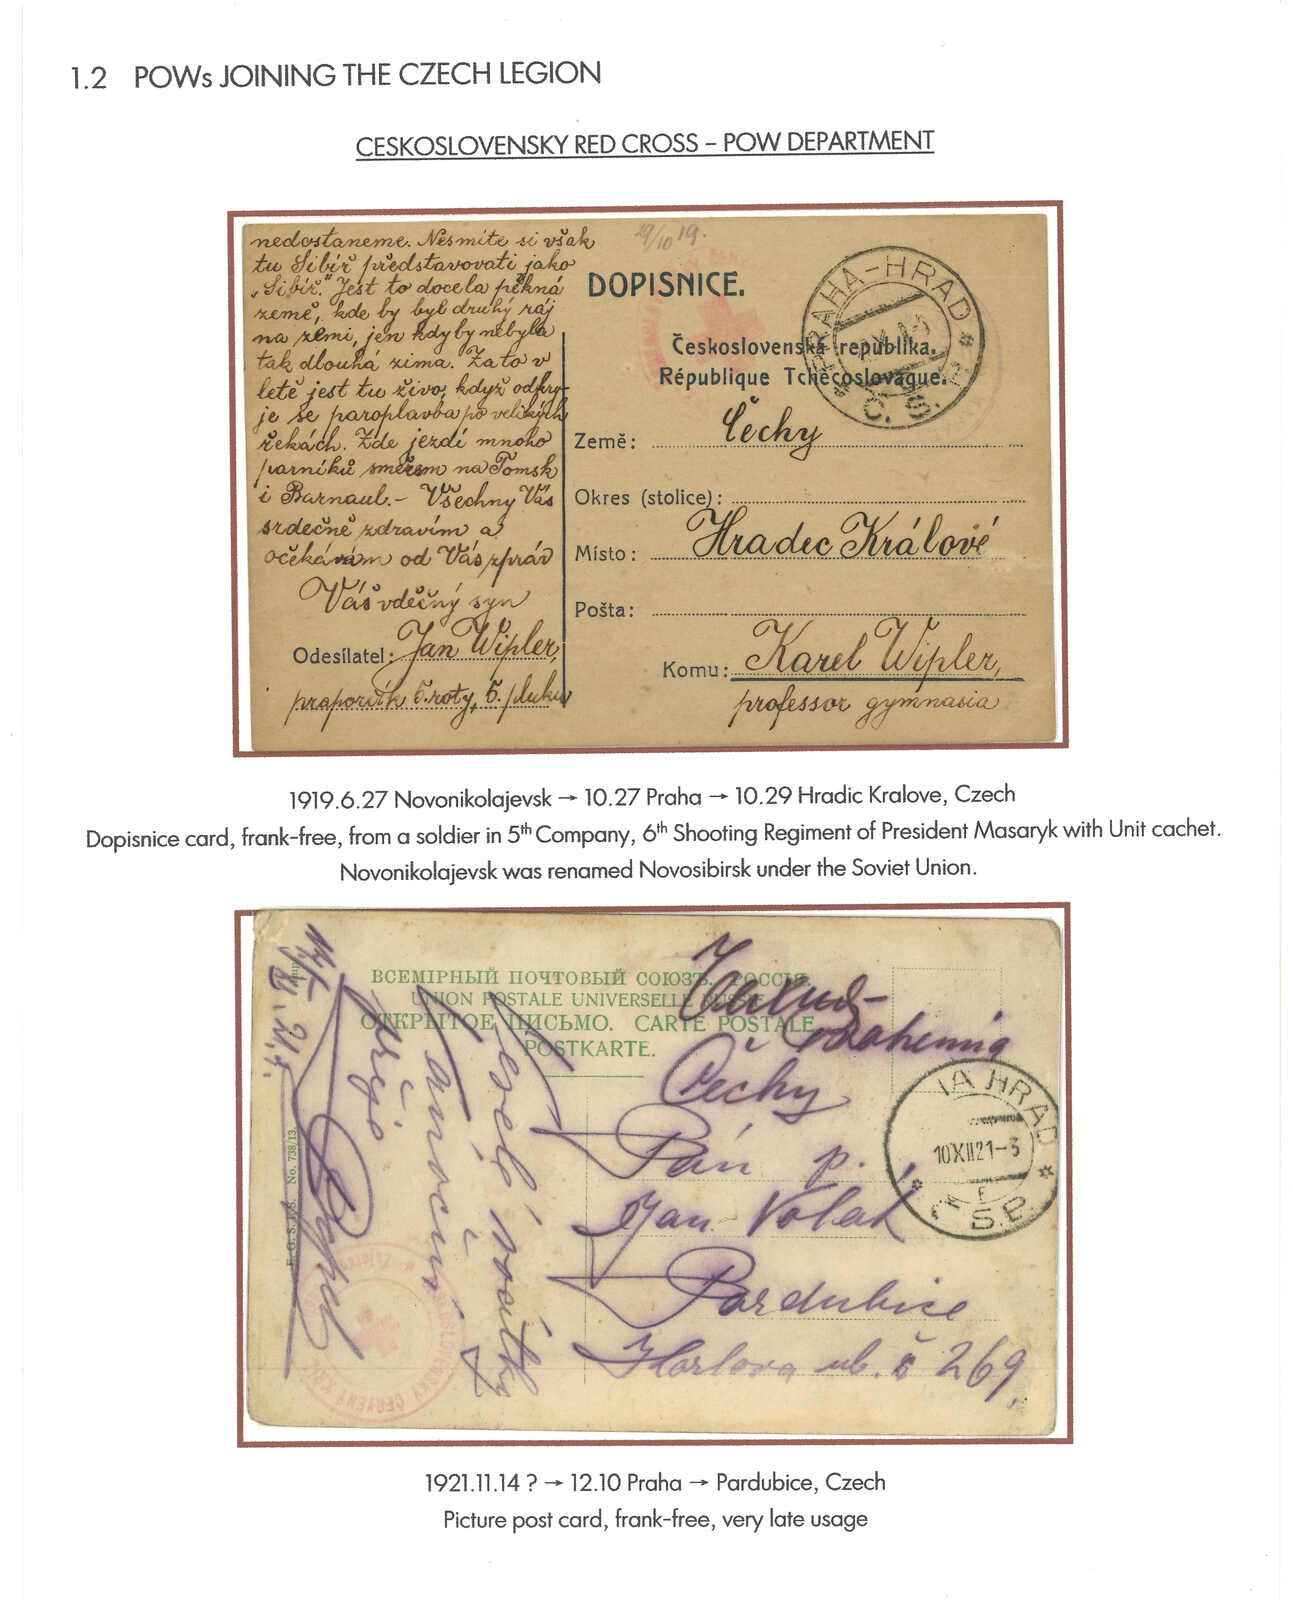 1.2 POWs JOINING THE CZECH LEGION
CESKOSLOVENSKY RED CROSS – POW DEPARTMENT
nedostaneme. Nesmíte si však
tu Sibiř představovati jako
„Sibiř.“ Jest to docela pěkná
země, kde by byl druhý ráj
na zemi, jen kdyby nebyla
tak dlouhá zima. Za to v
letě jest tu živo, když odkry-
je se paroplavba po velikých
řekách. Zde jezdí mnoho
parníků směrem na Tomsk
i Barnaul. – Všechny Vás
srdečně zdravím a
očekávám od Vás zpráv
Váš vděčný syn
Odesílatel: Jan Wipler,
praporčík 5. roty, 6. pluku
29/10 19.
DOPISNICE.
PRAHA-HRAD
Č. S.
Československá republika.
République Tchécoslovaque.
Země: Čechy
Okres (stolice):
Místo: Hradec Králové
Pošta:
Komu: Karel Wipler,
professor gymnasia
1919.6.27 Novonikolajevsk → 10.27 Praha → 10.29 Hradic Kralove, Czech
Dopisnice card, frank-free, from a soldier in 5th Company, 6th Shooting Regiment of President Masaryk with Unit cachet.
Novonikolajevsk was renamed Novosibirsk under the Soviet Union.
ВСЕМІРНЫЙ ПОЧТОВЫЙ СОЮЗЪ. РОССІЯ.
UNION POSTALE UNIVERSELLE RUSSIE
ОТКРЫТОЕ ПИСЬМО. CARTE POSTALE
POSTKARTE.
Bohemia
Čechy
Pán p.
Jan Volák
Pardubice
ul. č 269.
Veselé
vánoční
přeje
No. 738/13.
HRAD
10XII21-3
ČESKOSLOVENSKÝ ČERVENÝ KŘÍŽ
1921.11.14 ? → 12.10 Praha → Pardubice, Czech
Picture post card, frank-free, very late usage